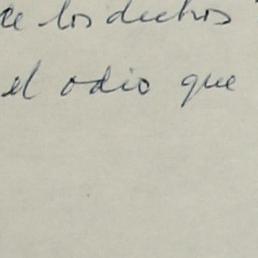 de los dechos
el odio que